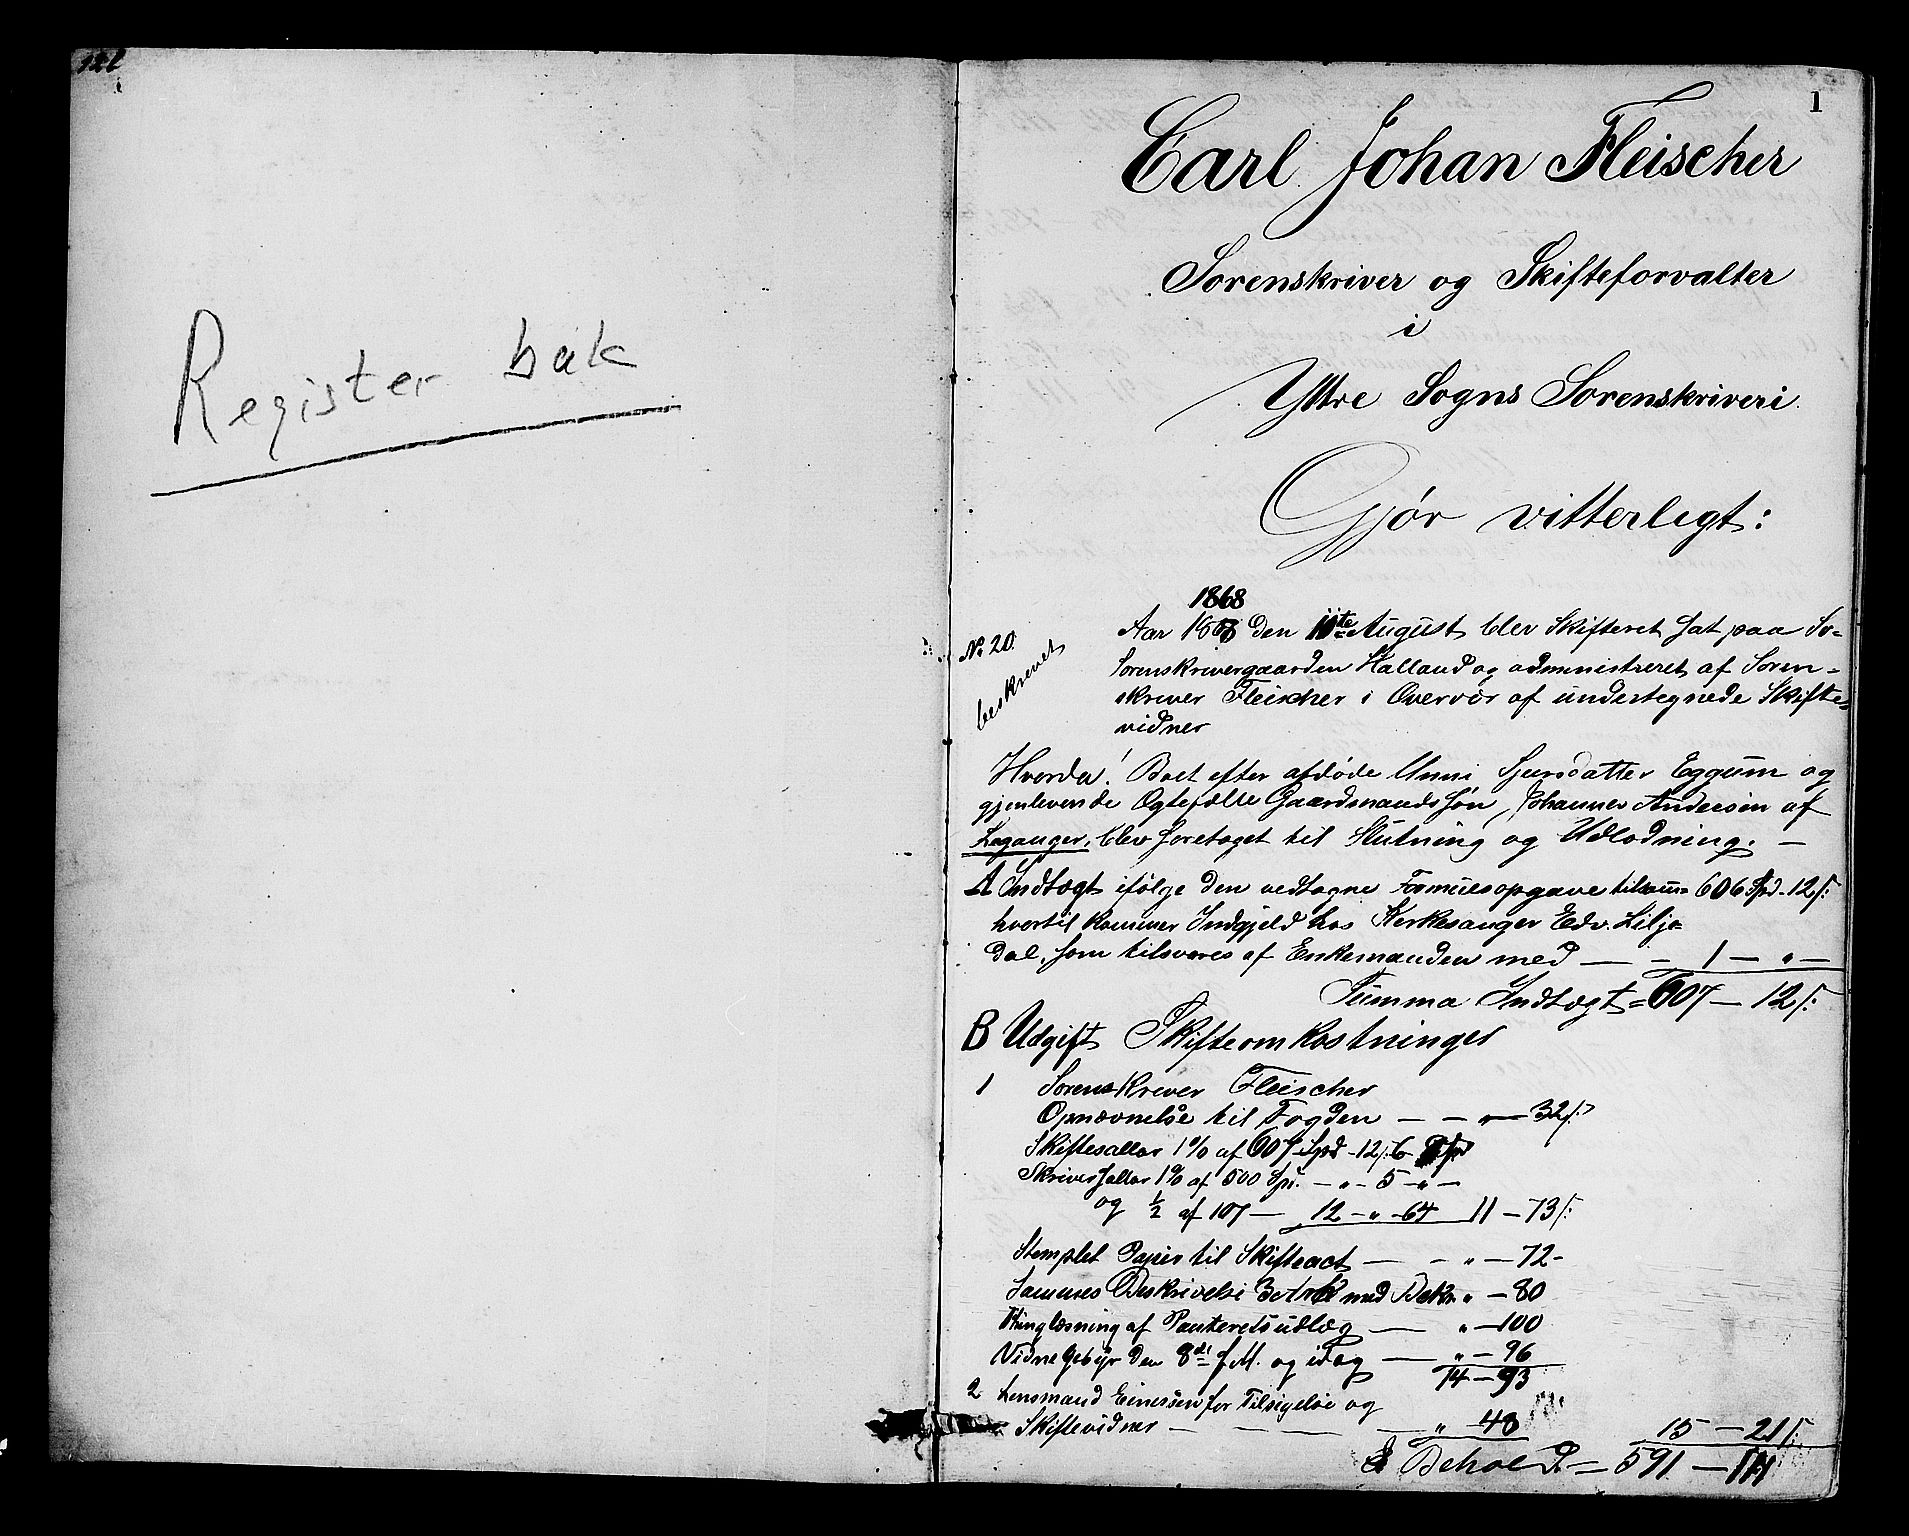 Register bak
1
Carl Johan Fleischer
Sorenskriver og Skifteforvalter
i
Yttre Sogns Sorenskriveri
Gjør vitterligt:
1868
No 20.
beskrevet
Aar 1868 den 11te August blev Skifteret sat paa So-
Sorenskrivergaarden Halland og administreret af Soren-
skriver Fleischer i Overvær af undertegnede Skifte-
vidner
Hvorda! Boet efter afdøde Unni Sjursdatter Eggum og
gjenlevende Ogtefælle Gaardmandssøn Johannes Andersen af
Leganger, blev foretaget til Slutning og Udlodning. —
A Indtægt ifølge den vedtagne Formuesopgave tilsam= 606 Spd - 12 s:
hvortil kommer Indgjeld hos Kirkesanger Edv. Lilje
dal, som tilsvares af Enkemanden med — - 1 — „ —
Summa Indtægt = 607 — 12 s:
B Udgift Skifteomkostninger
1 Sorenskriver Fleischer
Opnævnelse til Fogden — - „ — 32 s:
Skiftesallar 1% af 607 Spd - 12 s: 6
Skriversallar 1% af 500 Spd. — „ - 5 - „ —
og ½ af 107 — 12 - „ - 64 11 — 73 s:
Stemplet Papir til Skifteact — - „ — 72 -
Sammes Beskrivelse 3 Ark med Bekr. „ — 80
Thinglæsning af Panteretsudlæg — „ — 100
Vidnegebyr den 8de f.M. og idag — „ — 96
14 — 93
2 Lensmand Einersen for Tilsigelse og
Skiftevidner — — — — „ 48 15 — 21 s:
Behold = 591 — 111